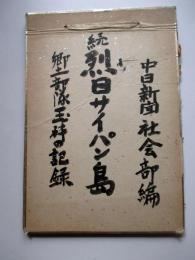 中日新聞社会部編
続
烈日サイパン島
郷土部隊玉砕の記録